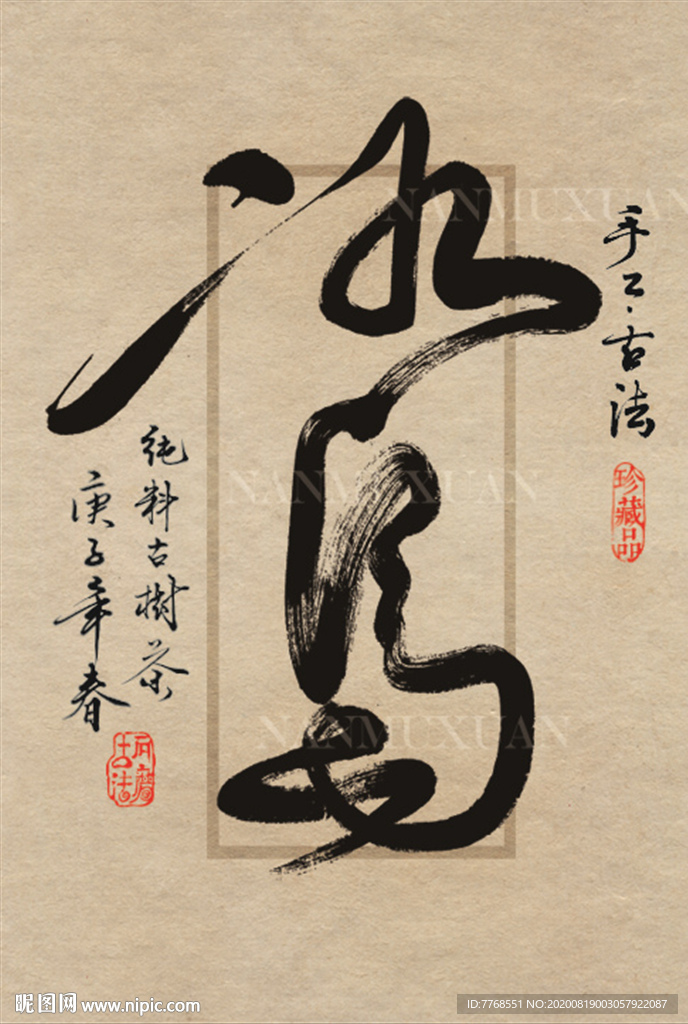 手工·古法
珍藏品
冰島
純料古樹茶
庚子年春
石磨
古法
NANMUXUAN
NANMUXUAN
NANMUXUAN
昵图网 www.nipic.com
ID:7768551 NO:20200819003057922087